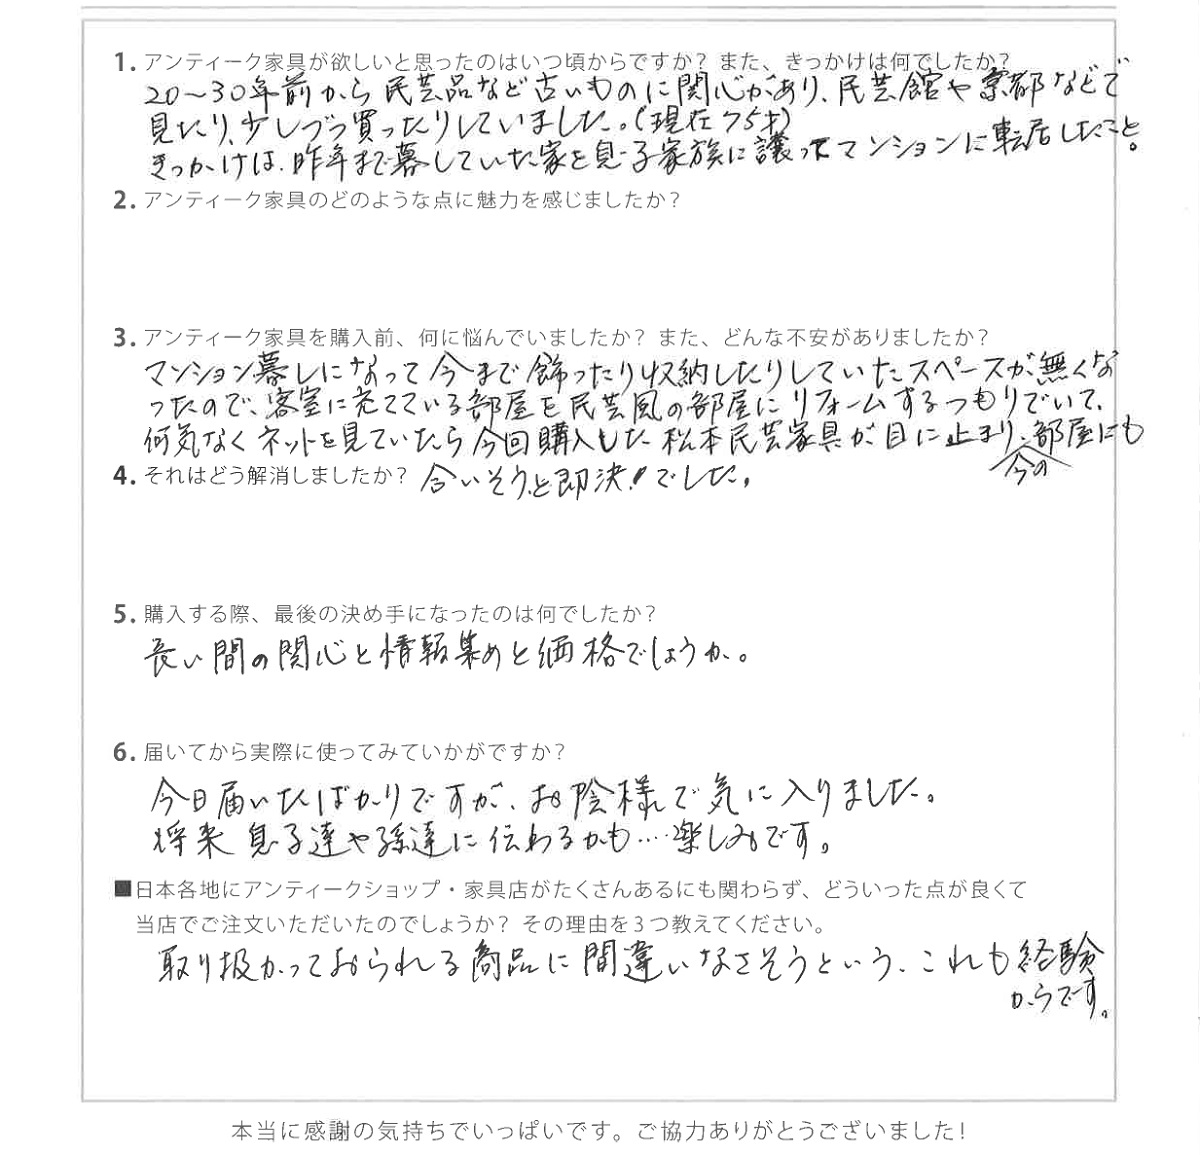 1. アンティーク家具が欲しいと思ったのはいつ頃からですか? また、きっかけは何でしたか?
20〜30年前から民芸品など古いものに関心があり、民芸館や京都などで
見たり、少しづつ買ったりしていました。(現在75才)
きっかけは、昨年まで暮していた家を息子家族に譲ってマンションに転居したこと。
2. アンティーク家具のどのような点に魅力を感じましたか?
3. アンティーク家具を購入前、何に悩んでいましたか? また、どんな不安がありましたか?
マンション暮しになって今まで飾ったり収納したりしていたスペースが無くな
ったので、客室に充てている部屋を民芸風の部屋にリフォームするつもりでいて、
何気なくネットを見ていたら今回購入した松本民芸家具が目に止まり、今の部屋にも
4. それはどう解消しましたか? 合いそう、と即決!でした。
5. 購入する際、最後の決め手になったのは何でしたか?
長い間の関心と情報集めと価格でしょうか。
6. 届いてから実際に使ってみていかがですか?
今日届いたばかりですが、お陰様で気に入りました。
将来息子達や孫達に伝わるかも…楽しみです。
■日本各地にアンティークショップ・家具店がたくさんあるにも関わらず、どういった点が良くて
当店でご注文いただいたのでしょうか? その理由を3つ教えてください。
取り扱かっておられる商品に間違いなさそうという、これも経験
からです。
本当に感謝の気持ちでいっぱいです。ご協力ありがとうございました!